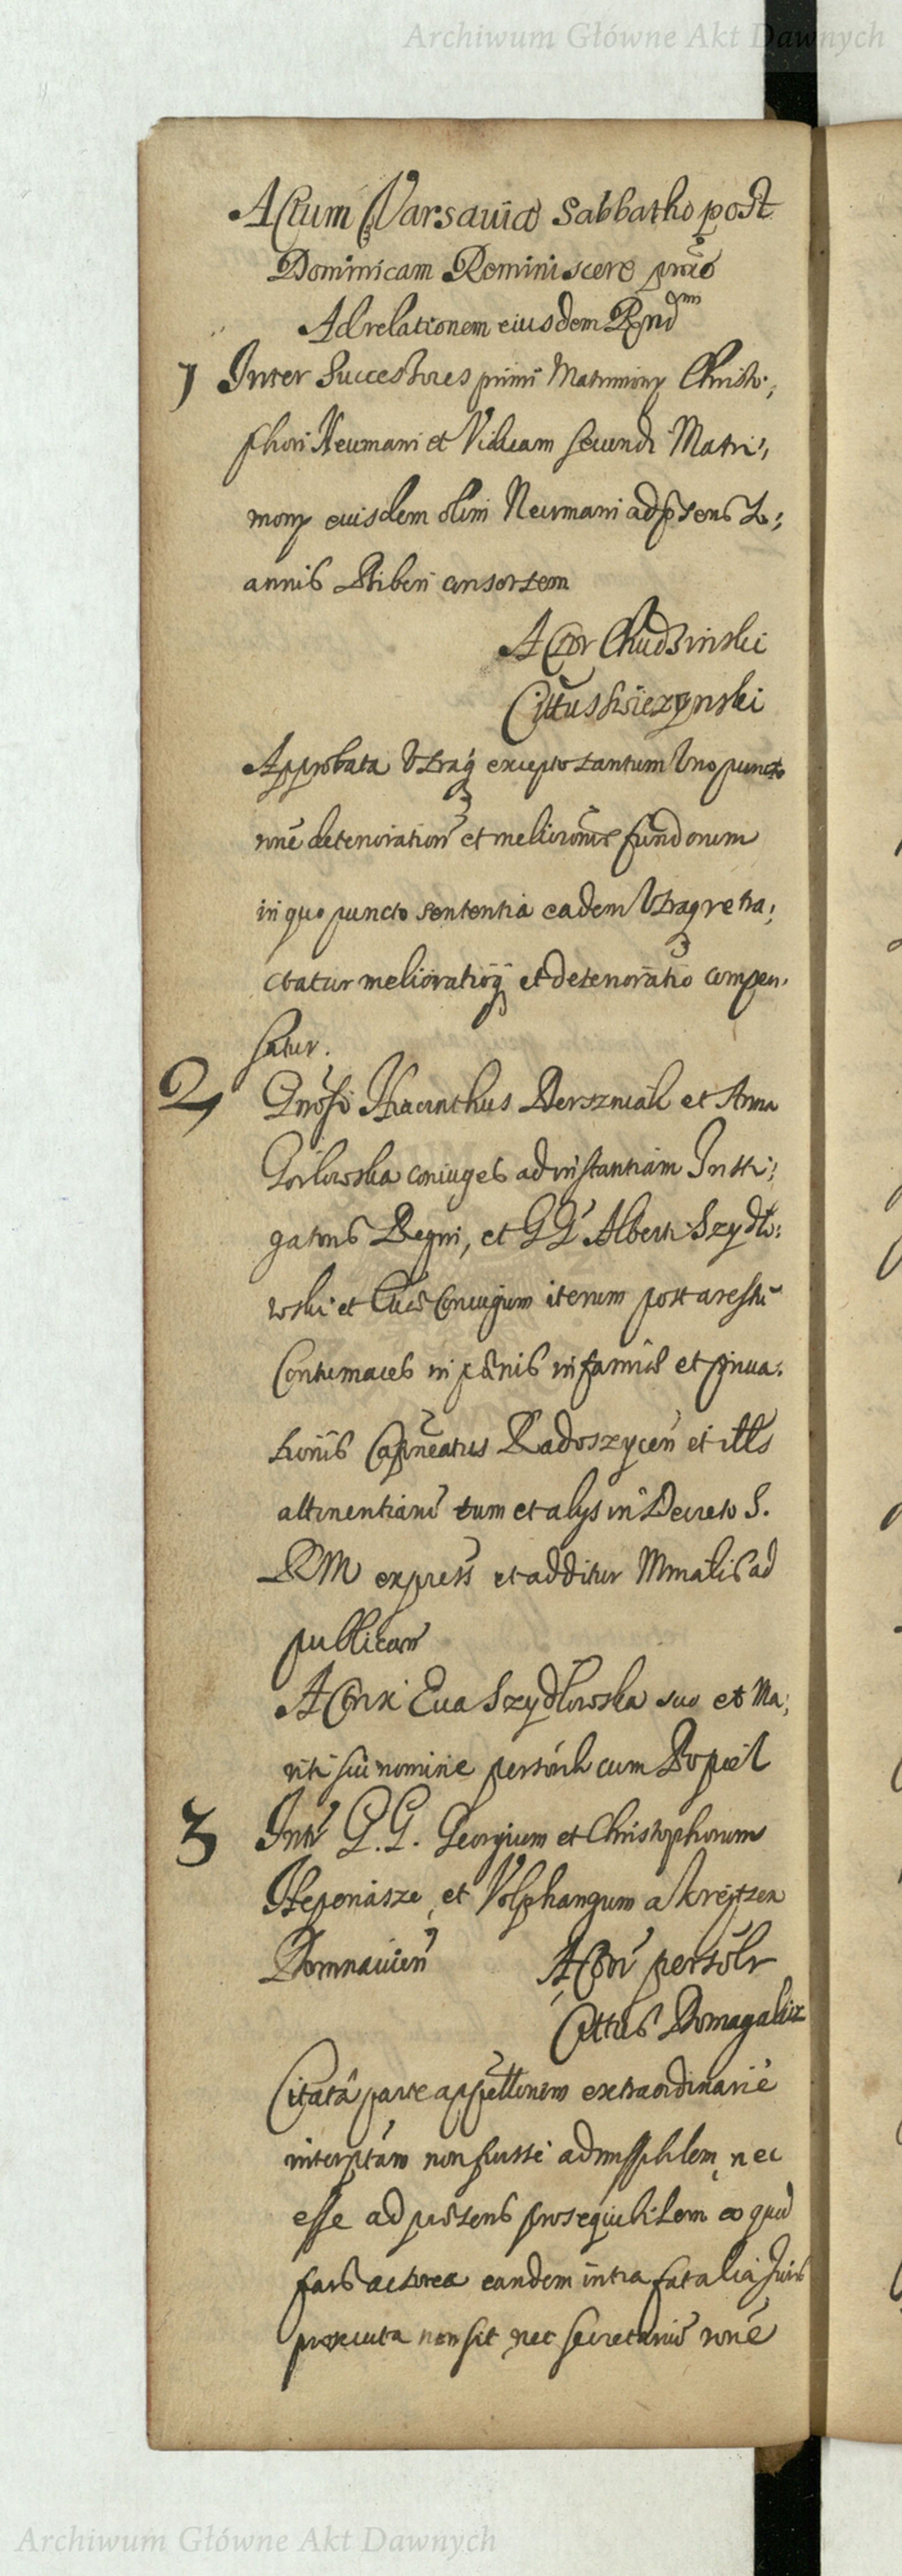 Archiwum Główne Akt Dawnych
Actum Varsaviae Sabbatho post
Dominicam Reminiscere
Ad relationem eiusdem Rndmi
1 Inter Successores primi Matrimony Christo;
phori Neumani et Viduam secundi Matri;
mony eiusdem olim Neumani ad psens Io;
annis Biberi consortem
Actor Chudzinski
Cittus Swiezynski
Approbata Utraq excepto tantum Uno puncto
rone deterioration et melioronis fundorum
in quo puncto sententia eadem Utraq retra;
ctatur melioratioq et deterioratio compen,
satur.
2 Gnosi Hiacinthus Derszniak et Anna
Gorlowska coniuges ad instantiam Insti;
gatoris Regni, et GG Alberti Szydło;
wski et Evae Coniugum iterum post aresti
Contumaces in paenis infamiae et priva;
tionis Capneatus Radoszycen et ills
attinentiami tum et alys in Decreto S.
RM express et additur Mmalis ad
publican
Actrix Eva Szydłowska suo et Ma;
riti sui nomine personl cum Popiel
3 Intr G.G. Georgium et Christophorum
et Volphangum a Kreytzen
Domnavien Actor persolr
Cittus Domagalicz
Citata parte appellonem extraordinarie
interptam non fuisse admissiblem, nec
esse ad praesens prosequibilem eo quod
pars actorea eandem intra fatalia Juris
prosecuta non sit nec secretariae rone
Archiwum Główne Akt Dawnych